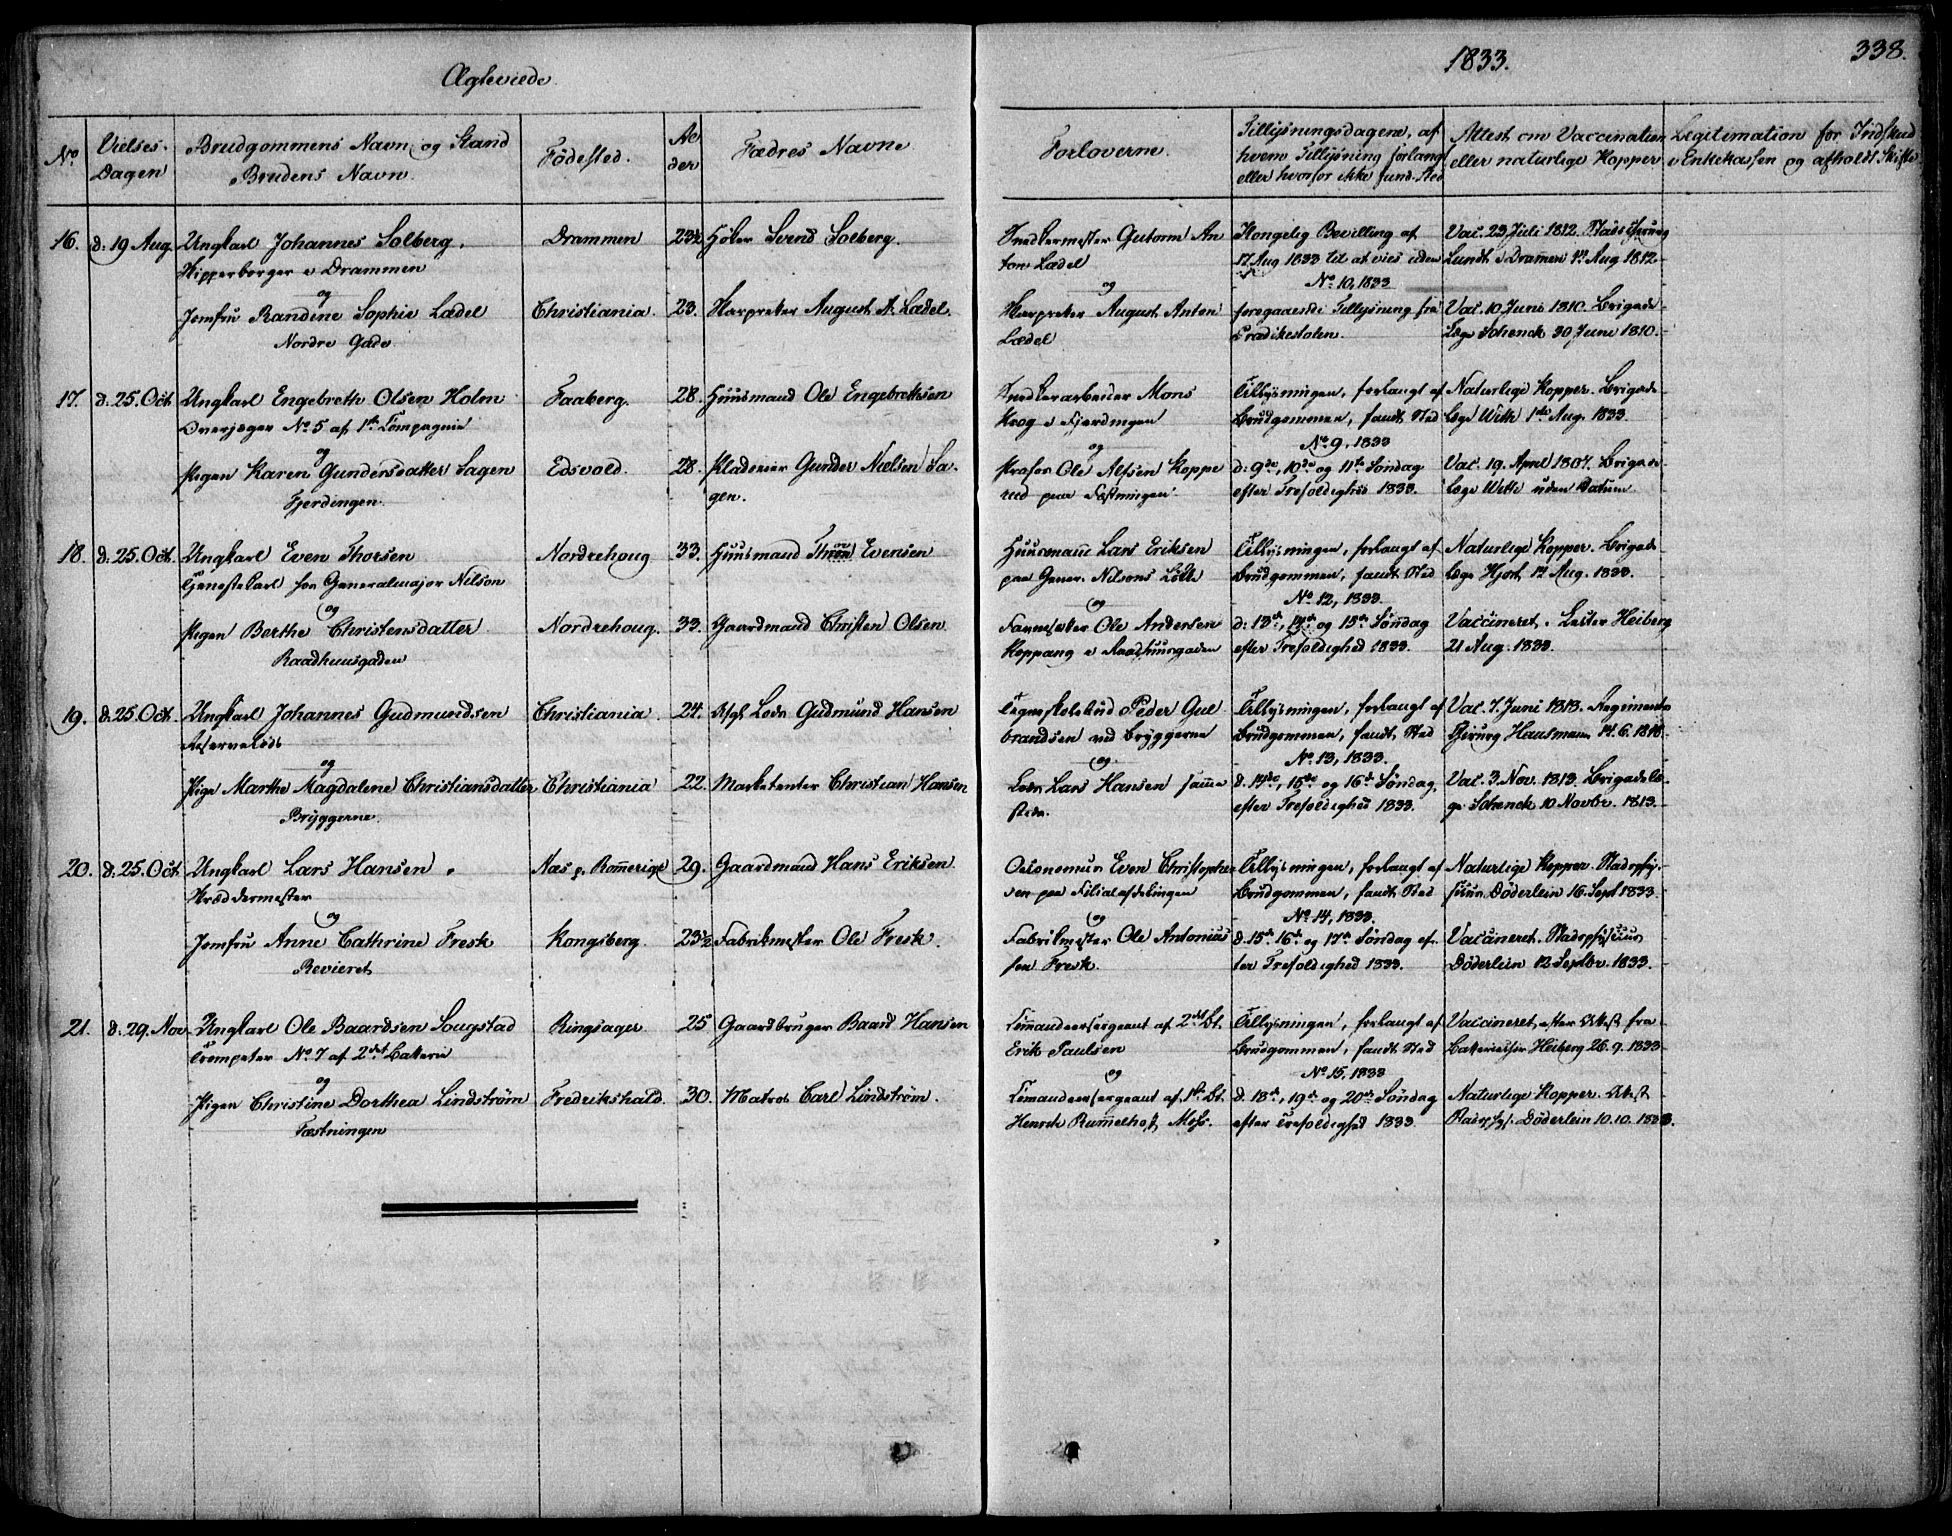 Ægteviede
1833.
338.
No
Vielses-
Dagen
Brudgommens Navn og Stand
Brudens Navn.
Fødested.
Al
der
Fædres Navne
Forloverne.
Tillysningsdagene, af
hvem Tillysning forlangt
eller hvorfor ikke fundt Sted
Attest om Vaccination
eller naturlige Kopper
Legitimation for Indskud
i Enkekassen og afholdt Skifte
16.
d. 19 Aug.
Ungkarl Johannes Solberg.
borger i Drammen
og
Jomfru Randine Sophie Lædel
Nordre Gade
Drammen
Christiania.
23½
23.
Høker Svend Solberg.
August A. Lædel.
Snedkermester Gutorm An
ton Lædel
og
August Anton
Lædel
Kongelig Bevilling af
17 Aug 1833 til at vies uden
No 10, 1833
foregaaende Tillysning fra
Prædikestolen.
Vac. 23 Juli 1812.
Lundt i Drammen Aug 1812
Vac. 10 Juni 1810. Brigade
Læge Schenck 30 Juni 1810.
17.
d. 25. Oct.
Ungkarl Engebreth Olsen Holm
Overjæger No 5 af 1ste Compagnie
og
Pigen Karen Gundersdatter Sagen
Fjerdingen.
Faaberg.
Edsvold.
28.
28.
Huusmand Ole Engebretsen
Gunder Nielsen Sa-
gen.
Snedkerarbeider Mons
Krog i Fjerdingen
og
Profos Ole Alfsen Koppe
rud paa Fæstningen.
Tillysningen, forlangt af
Brudgommen, fandt Sted
No 9, 1833
d: 9de, 10de og 11te Søndag
efter Trefoldighed 1833.
Naturlige Kopper. Brigade
læge With 1ste Aug. 1833.
Vac. 19. April 1807. Brigade
læge With uden Datum.
18.
d. 25. Oct.
Ungkarl Even Thorsen
Tjenestekarl hos Generalmajor Nilson
og
Pigen Berthe Christensdatter
Raadhuusgaden
Nordrehoug
Nordrehoug.
33.
33.
Huusmand Evensen
Gaardmand Christen Olsen
Huusmann Lars Eriksen
paa Gener. Nilsons Løkke
og
Ole Andersen
Koppang i Raadhuusgaden
Tillysningen, forlangt af
Brudgommen, fandt Sted
No 12, 1833.
d: 13de, 14de og 15de Søndag
efter Trefoldighed 1833.
Naturlige Kopper. Brigade
læge Hjort Aug. 1833.
Vaccineret. Heiberg
21 Aug. 1833.
19.
d. 25. Oct.
Ungkarl Johannes Gudmundsen
Reservelods
og
Pige Marthe Magdalene Christiansdatter
Bryggerne.
Christiania.
Christiania
24.
22.
Lods Gudmund Hansen
Marketenter Christian Hansen
Peder Gul
brandsen ved Bryggerne
og
Lods Lars Hansen samme
steds.
Tillysningen, forlangt af
Brudgommen, fandt Sted
No 13, 1833.
d. 14de, 15de og 16de Søndag,
efter Trefoldighed 1833.
Vac. 7. Juni 1818. Regiments
Chirurg Hausmann 14. 6. 1818.
Vac. 3. Nov. 1813. Brigadelæ-
ge Schenck 10 Novbr. 1813.
20.
d. 25. Oct
Ungkarl Lars Hansen.
Skræddermester
og
Jomfru Anne Cathrine Fresk
Revieret
Næs p. Romerige
Kongsberg.
29.
23½
Gaardmand Hans Eriksen
Fabrikmester Ole Fresk.
Oeconomus Even Christopher
sen paa Filialafdelingen
og
Fabrikmester Ole Antonius
sen Fresk.
Tillysningen, forlangt af
Brudgommen, fandt Sted
No 14, 1833.
d. 15de, 16de og 17de Søndag ef-
ter Trefoldighed 1833.
Naturlige Kopper. Stadsphy-
sicus Döderlein 16. Sept 1833
Vaccineret. Stadsphysicus
Döderlein 12 Septbr. 1833.
21.
d. 29. Nov.
Ungkarl Ole Baardsen Sougstad
Trompeter No 7 af 2det Batterie
og
Pigen Christine Dorthea Lindstrøm
Fæstningen
Ringsager.
Fredrikshald.
25
30.
Gaardbruger Baard Hansen
Matros Carl Lindstrøm.
Commandeersergeant af 2det Bt.
Erik Paulsen
og
Commandeersergeant af 1ste Bt.
Henrik Rummelhoff Moss.
Tillysningen, forlangt af
Brudgommen, fandt Sted
No 15, 1833
d. 18de, 19de og 20de Søndag
efter Trefoldighed 1833
Vaccineret, efter Attest fra
Heiberg 26. 9. 1833
Naturlige Kopper. Attest
Stadsphys. Döderlein 10. 10. 1833.